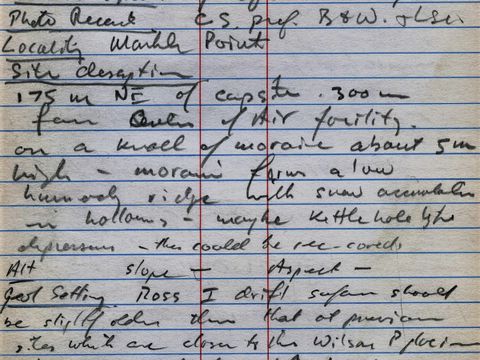 Photo Record C.S. prof. B&W.
Locality Marble Point
Site description
175 m NE of 300 m
from of Air facility.
on a knoll of moraine about 5m
high - moraine forms a low
hummocky ridge with snow accumulation
in hollows - maybe Kettle hole type
depressions - this could be
Alt slope - Aspect -
Geol Setting. Ross I drift surface should
be slightly older than that at previous
sites which are closer to the Wilson Piedmont